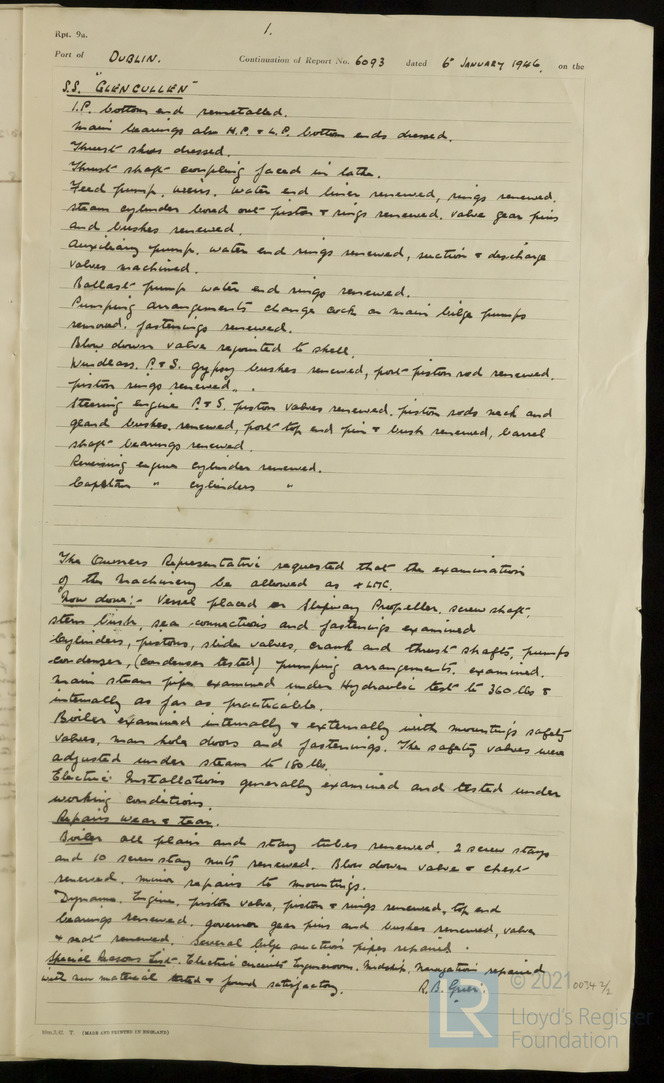 Rpt. 9a.
1.
Port of DUBLIN. Continuation of Report No. 6093 dated 6th JANUARY 1946, on the
S.S. "GLENCULLEN"
I.P. bottom end remetalled.
Main bearings also H.P. & L.P. bottom ends dressed.
Thrust shoes dressed.
Thrust shaft coupling faced in lathe.
Feed pump, weirs, water end liner renewed, rings renewed,
steam cylinder bored out piston & rings renewed, valve gear pins
and bushes renewed.
Auxiliary pump, water end rings renewed, suction & discharge
valves machined.
Ballast pump water end rings renewed.
Pumping arrangements change cock on main bilge pumps
removed, fastenings renewed.
Blow down valve rejointed to shell.
Windlass. P. & S. gypsy bushes renewed, port piston rod renewed,
piston rings renewed.
Steering engine P. & S. piston valves renewed, piston rods neck and
gland bushes renewed, port top end pin & bush renewed, barrel
shaft bearings renewed.
Reversing engine cylinder renewed.
Capstan " cylinders "
The Owners Representative requested that the examination
of the Machinery be allowed as + LMC.
Now done:- Vessel placed on Slipway Propeller, screw shaft,
stern bush, sea connections and fastenings examined
Cylinders, pistons, slide valves, crank and thrust shafts, pumps
condenser, (condenser tested) pumping arrangements, examined.
Main steam pipe examined under Hydraulic test to 360 lbs &
internally as far as practicable.
Boiler examined internally & externally with mountings safety
valves, man hole doors and fastenings. The safety valves were
adjusted under steam to 180 lbs.
Electric Installations generally examined and tested under
working conditions.
Repairs Wear & tear.
Boiler all plain and stay tubes renewed, 2 screw stays
and 10 screw stay nuts renewed. Blow down valve & chest
renewed, minor repairs to mountings.
Dynamo Engine, piston valve, piston & rings renewed, top end
bearings renewed, governor gear pins and bushes renewed, valve
& seat renewed. Several bilge suction pipes repaired.
Special Reasons List. Electric circuits Engineroom, Midship, Navigation repaired
with new material tested & found satisfactory.
R.B. Grier.
0034 2/2
10m.3.42 T. (MADE AND PRINTED IN ENGLAND)
LR
© 2021
Lloyd's Register
Foundation